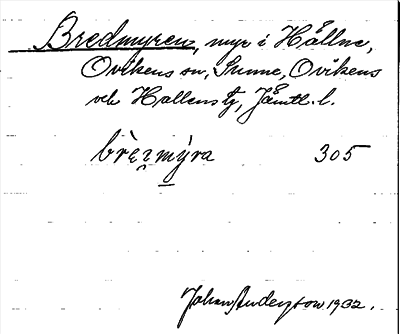 Bredmyren, myr i Hållne,
Ovikens sn, Sunne, Ovikens
och Hallens tg, Jämtl. l.
brèɛmýra 305
Johan Anderson 1932.